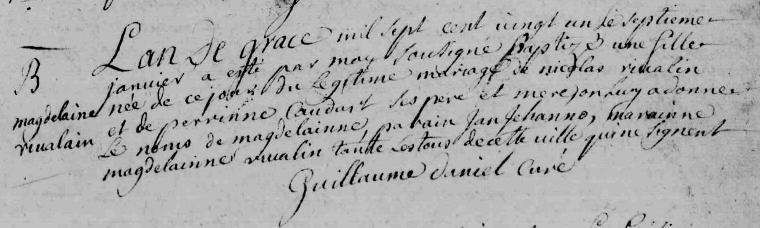 B
magdelaine
rivalain
L'an de grace mil sept cent vingt un le septieme
janvier a esté par moy soutigne Baptizé une fille
née de ce jour du Legitime mariage de nicolas rivalin
et de perrinne Caudart ses pere et mere on luy a donné
Le noms de magdelainne parain Jan Jehanno, marainne
magdelainne rivalin tante les tous de cette ville qui ne signent
Guillaume daniel Curé